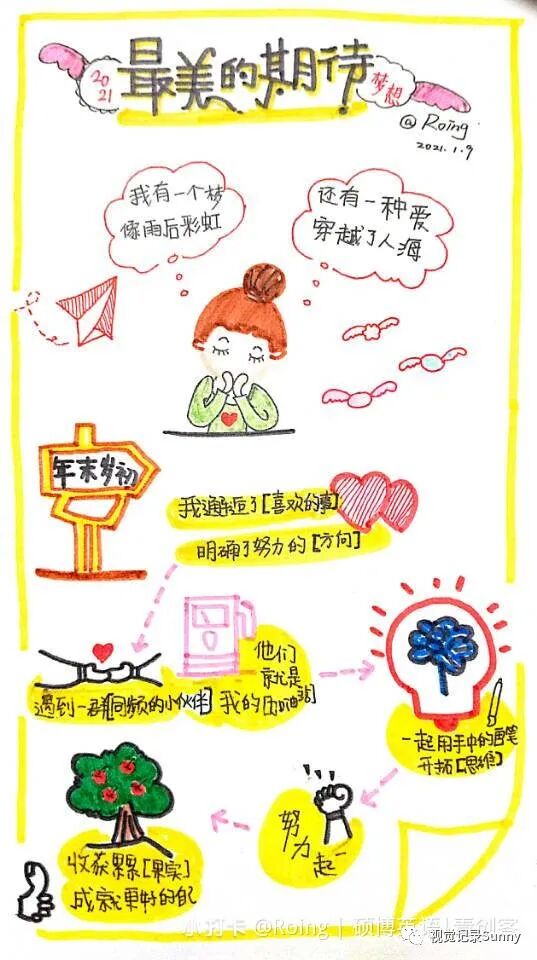 2021
最美的期待
梦想
@Roing
2021.1.9
我有一个梦
像雨后彩虹
还有一种爱
穿越了人海
年末岁初
我邂逅了[喜欢的事]
明确了努力的[方向]
遇到一群[同频的小伙伴]
他们
就是
我的[加油站]
一起用手中的画笔
开拓[思维]
努
力
起
收获累累[果实]
成就更好的自己
小打卡 @Roing | 硕博英语|青创客
视觉记录Sunny